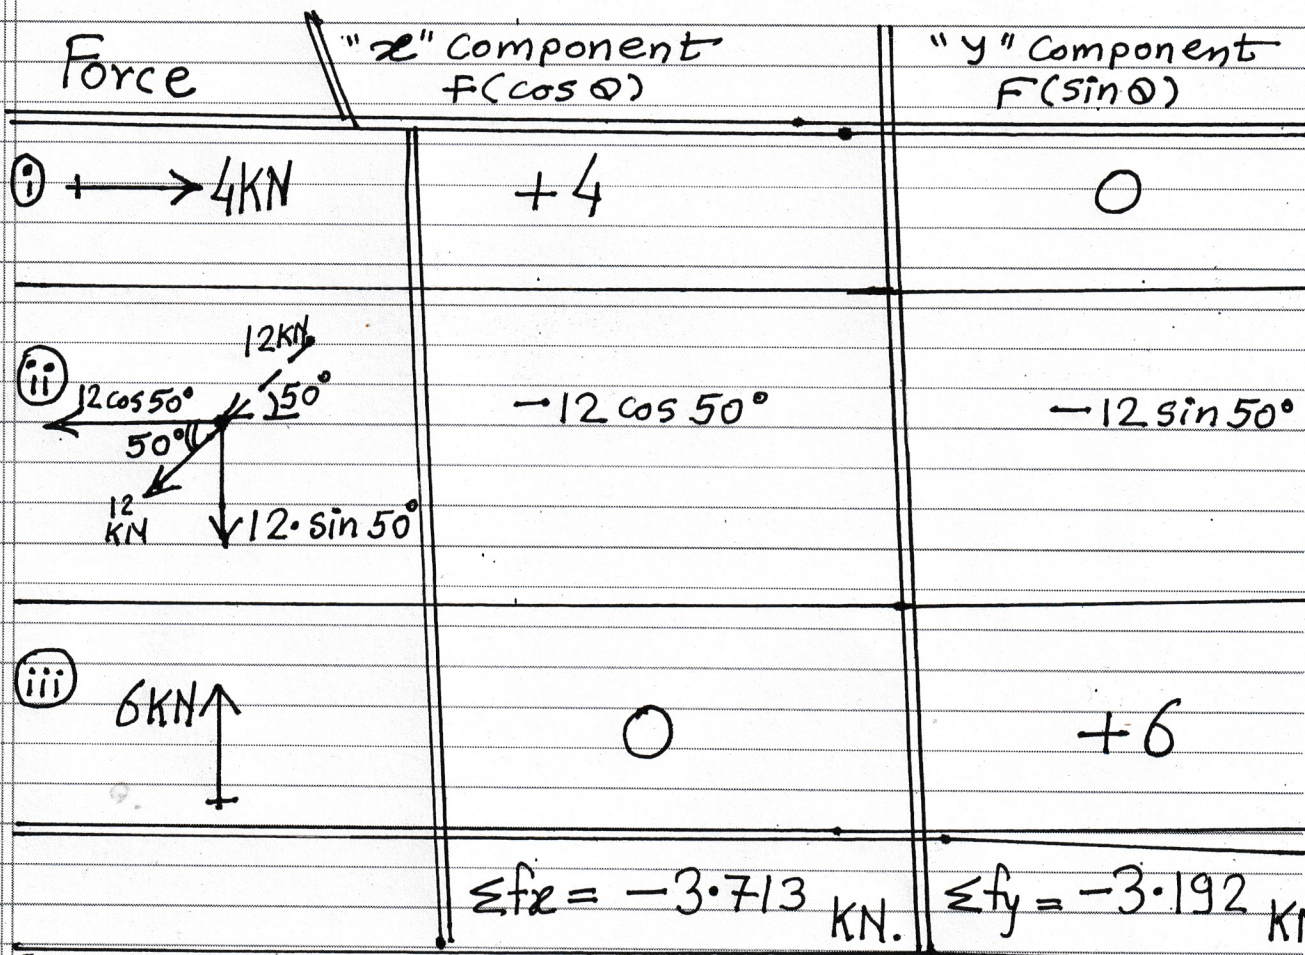 Force
"x" Component
F(cos θ)
"y" Component
F(sin θ)
i
4KN
+4
0
ii
12KN
12cos50°
50°
50°
12
KN
12·sin50°
-12 cos 50°
-12 sin 50°
iii
6KN
0
+6
Σfx = -3·713 KN.
Σfy = -3·192